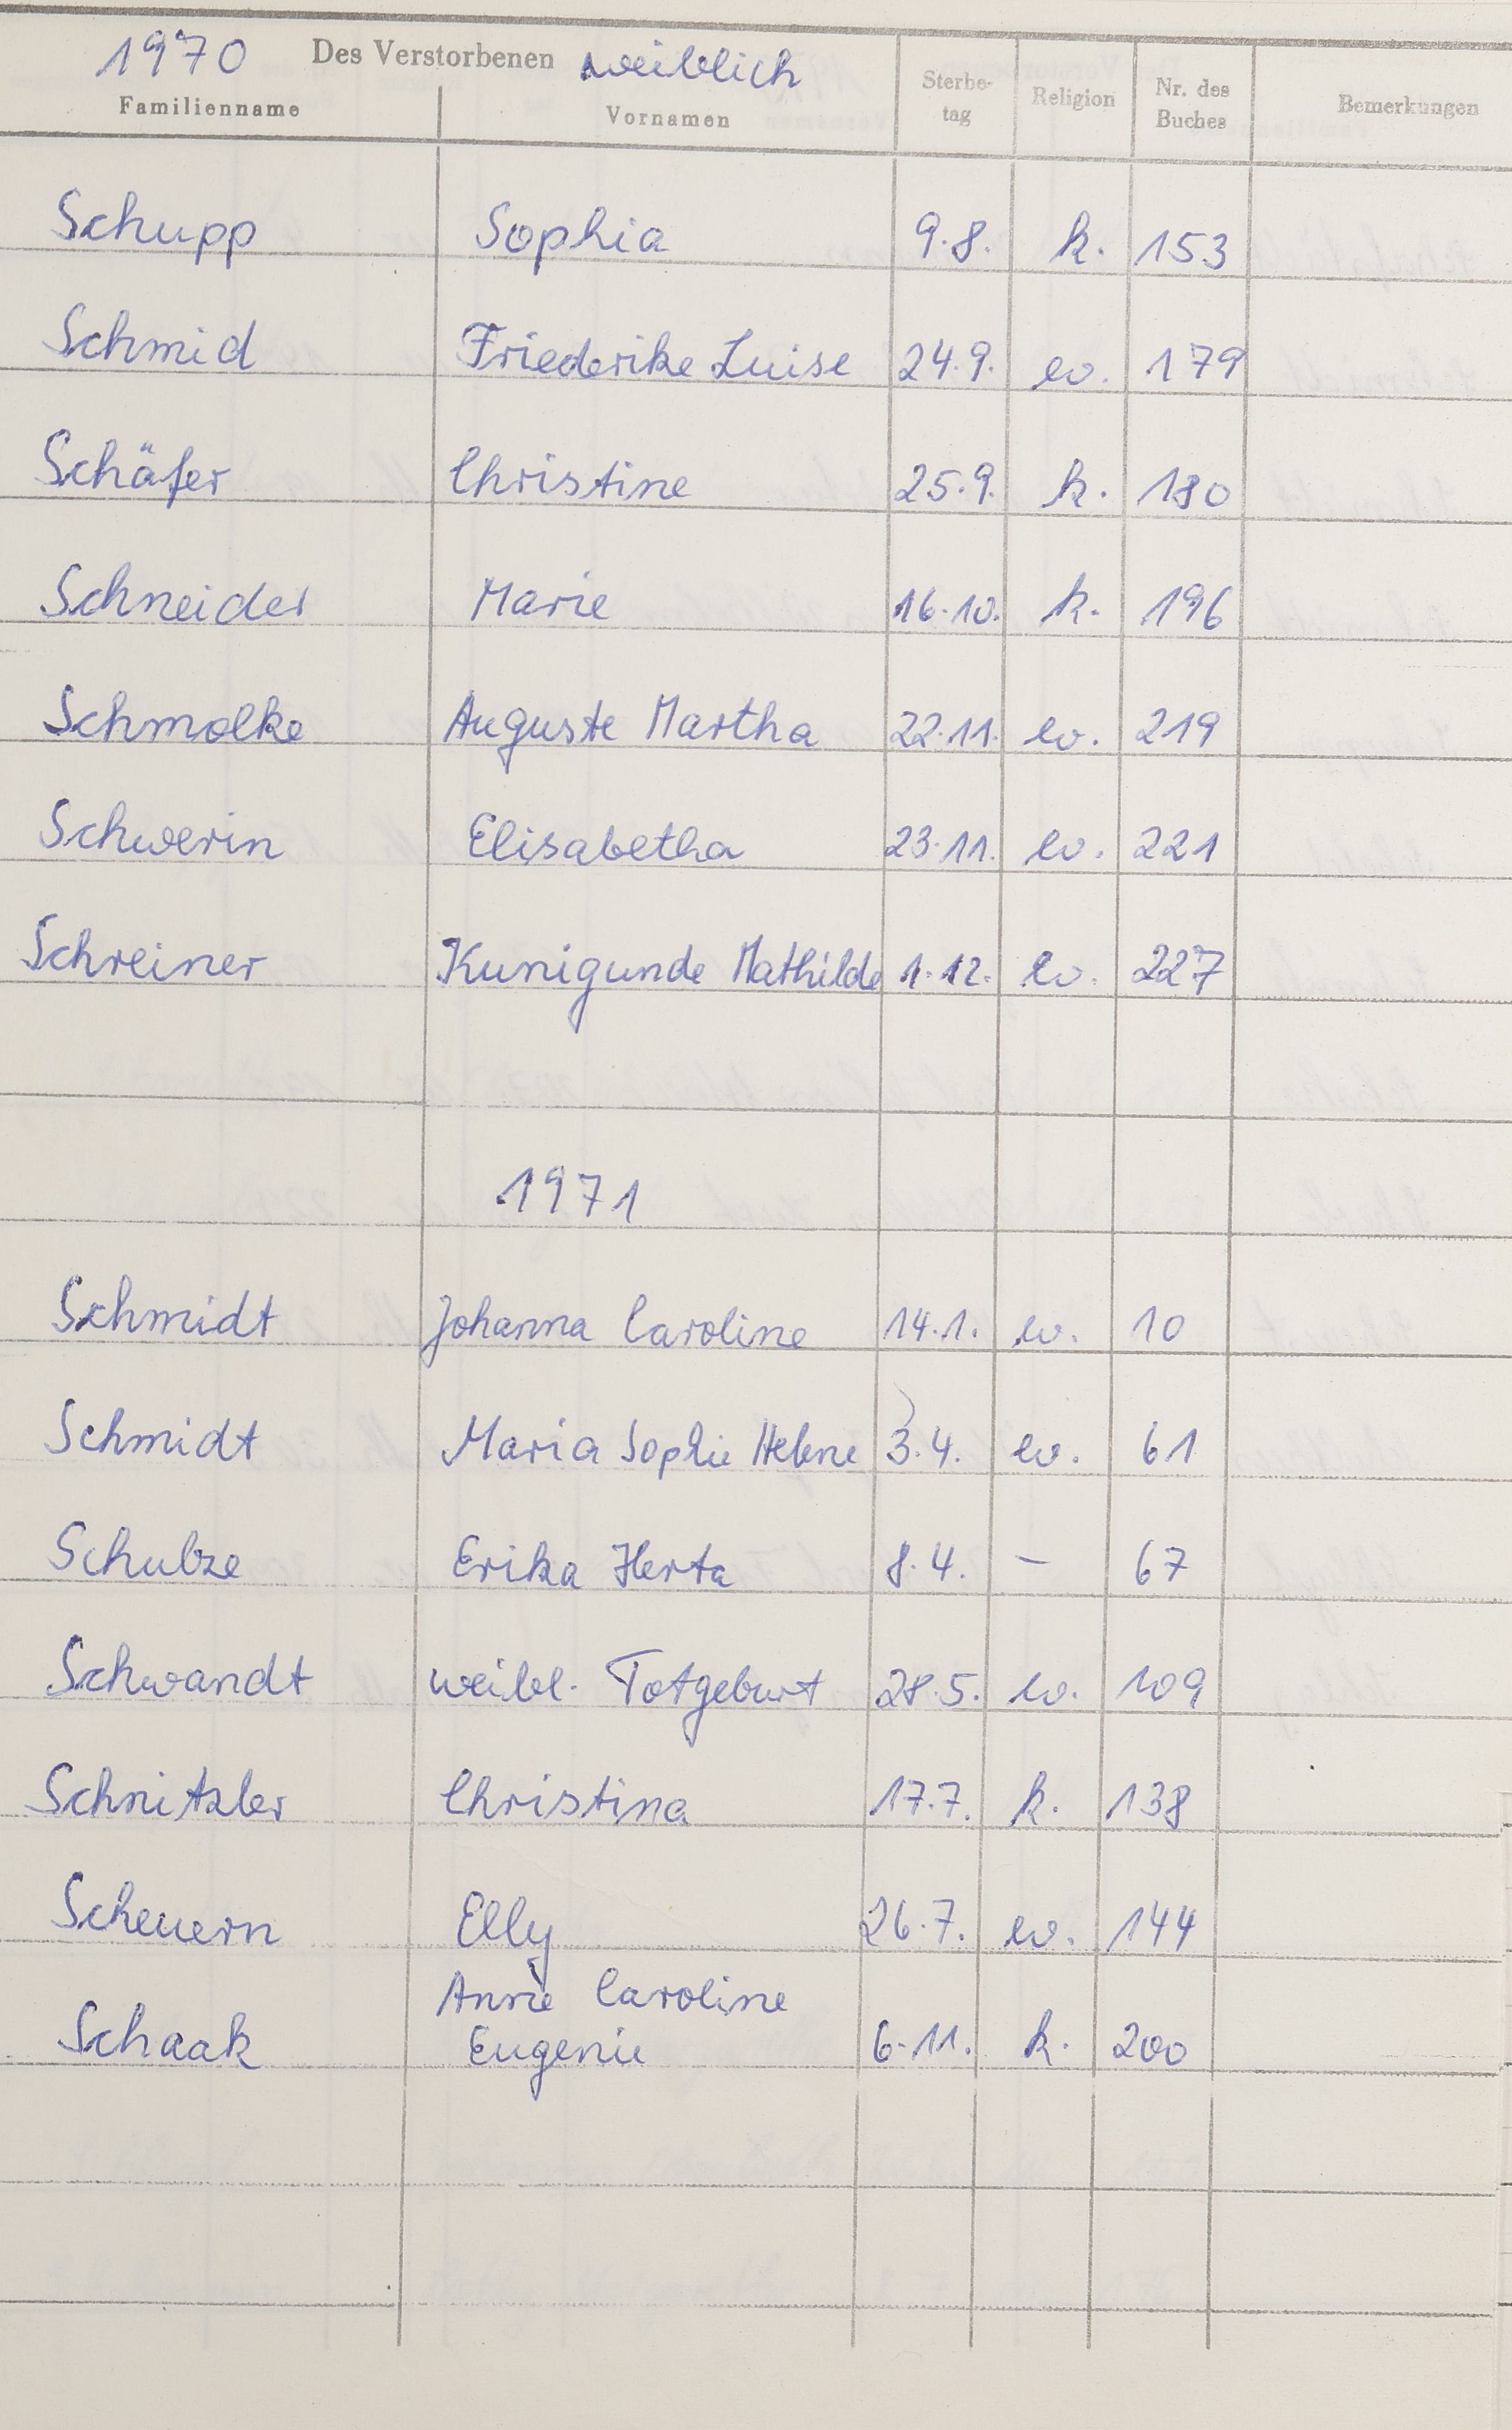 1970 Des Verstorbenen weiblich
Familienname Vornamen Sterbe-tag Religion Nr. des Buches Bemerkungen
Schupp Sophia 9.8. k. 153
Schmid Friederike Luise 24.9. ev. 179
Schäfer Christine 25.9. k. 180
Schneider Marie 16.10. k. 196
Schmolke Auguste Martha 22.11. ev. 219
Schwerin Elisabetha 23.11. ev. 221
Schreiner Kunigunde Mathilde 1.12. ev. 227
1971
Schmidt Johanna Caroline 14.1. ev. 10
Schmidt Maria Sophie Helene 3.4. ev. 61
Schulze Erika Herta 8.4. – 67
Schwandt weibl. Totgeburt 28.5. ev. 109
Schnitzler Christina 17.7. k. 138
Scheuern Elly 26.7. ev. 144
Anne Caroline
Schaak Eugenie 6.11. k. 200